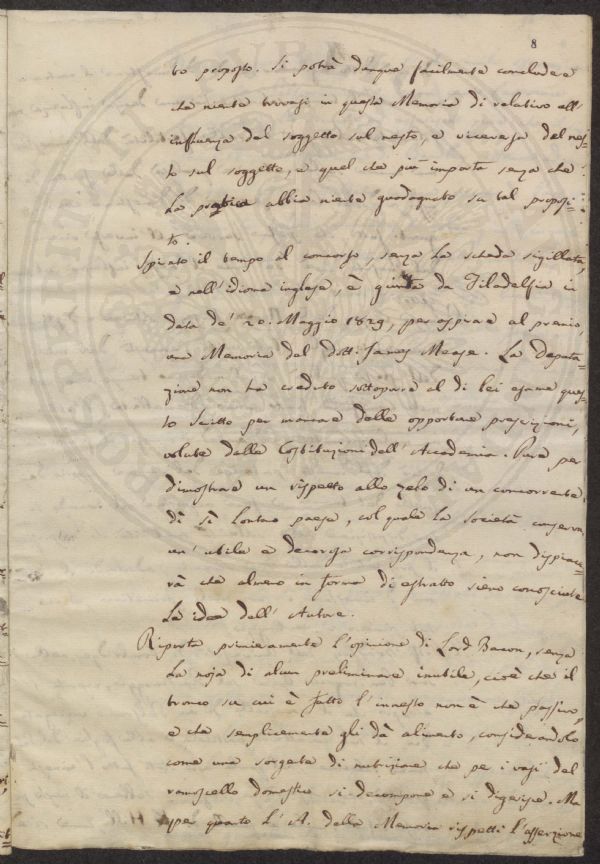 8
to proposto. Si potrà dunque facilmente concludere
che niente trovasi in questa Memoria di relativo all'
influenza del soggetto sul nesto, e viceversa del nes=
to sul soggetto, e quel che più importa senza che
la pratica abbia niente guadagnato su tal proposi=
to.
Spirato il tempo al concorso, senza la scheda sigillata,
e nell'idioma inglese, è giunta da Filadelfia in
data de' 20. Maggio 1829, per aspirare al premio,
una Memoria del dott. James Mease. La Deputa=
zione non ha creduto sottoporre al di lei esame ques=
to scritto per mancare delle opportune prescrizioni,
volute dalle Costituzioni dell'Accademia. Pure per
dimostrare un rispetto allo zelo di un concorrente
di sì lontano paese, col quale la Società conserva
un'utile e decorosa corrispondenza, non dispiace=
rà che almeno in forma di estratto sieno conosciute
le idee dell'Autore.
Riporta primieramente l'opinione di Lord Bacon, senza
la noja di alcun preliminare inutile, cioè che il
tronco su cui è fatto l'innesto non è che passivo,
e che semplicemente gli dà alimento, considerandolo
come una sorgente di nutrizione che per i vasi del
ramoscello domestico si decompone e si digerisce. Ma
per quanto l'A. della Memoria rispetti l'asserzione